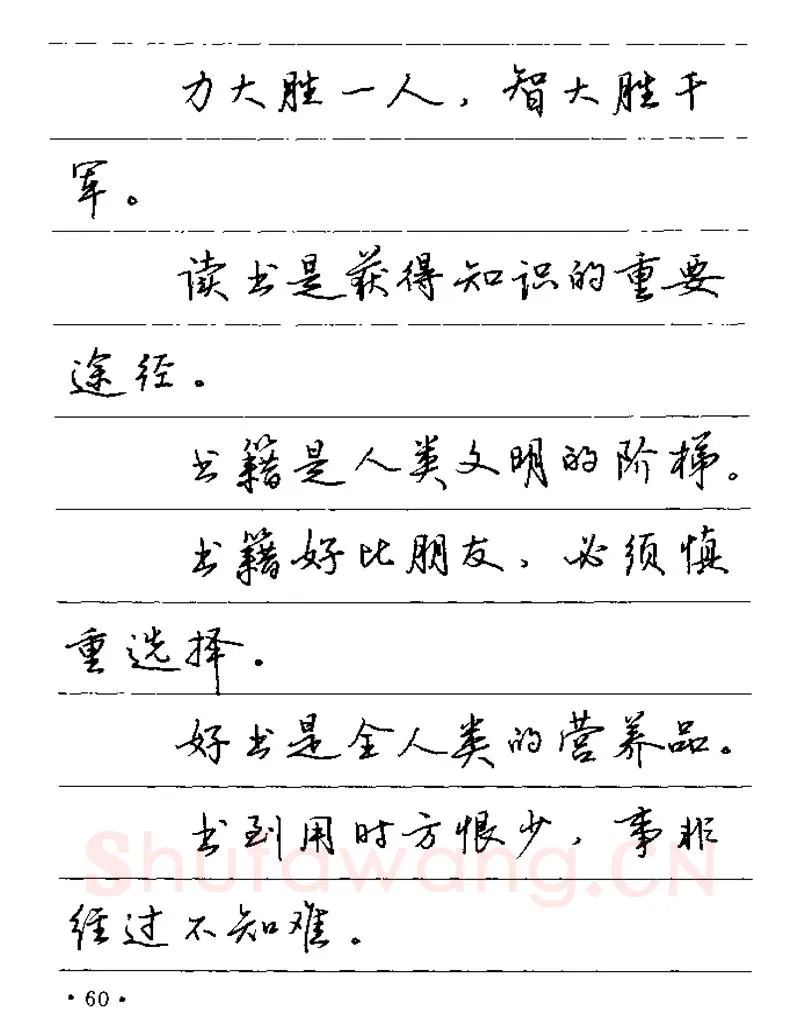 力大胜一人，智大胜千
军。
读书是获得知识的重要
途径。
书籍是人类文明的阶梯。
书籍好比朋友，必须慎
重选择。
好书是全人类的营养品。
书到用时方恨少，事非
经过不知难。
Shufawang.CN
·60·